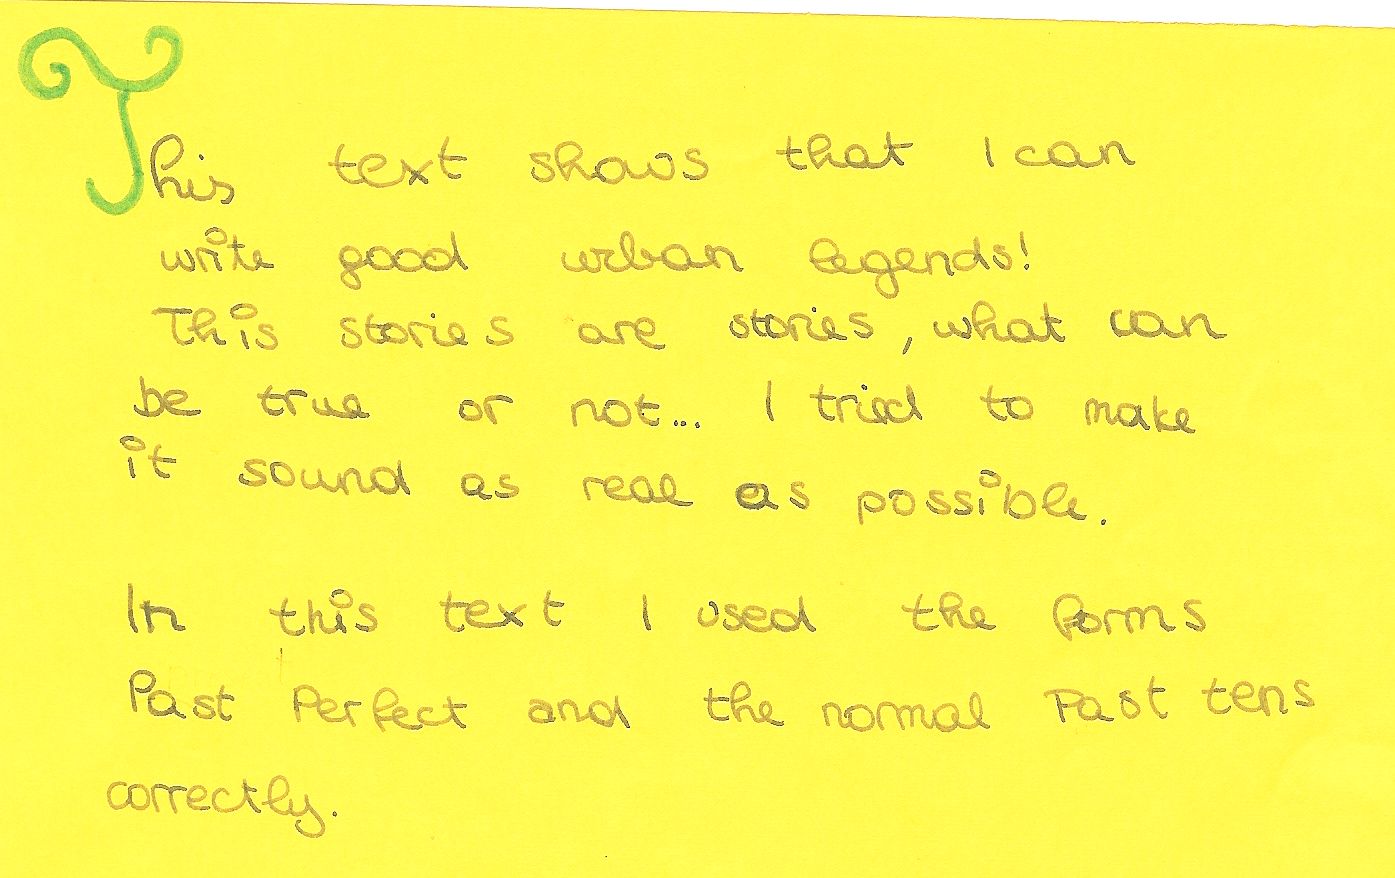 This text shows that I can
write good urban legends!
This stories are stories, what can
be true or not... I tried to make
it sound as real as possible.
In this text I used the forms
Past Perfect and the normal Past tens
correctly.